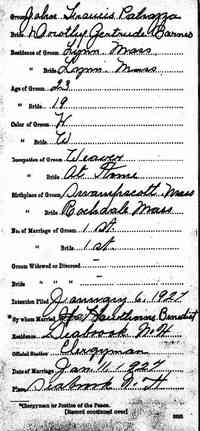 Groom John Francis Palmzza
Bride Dorothy Gertrude Barnes
Residence of Groom Lynn Mass
" Bride Lynn Mass
Age of Groom 23
" Bride 19
Color of Groom W
" Bride W
Occupation of Groom Weaver
" Bride At Home
Birthplace of Groom Swampscott, Mass
" Bride Rochdale Mass
No. of Marriage of Groom 1 st.
" Bride 1 st.
Groom Widowed or Divorced –
Bride " " " –
Intention Filed January 6, 1927
*By whom Married Hawthorne Benedict
Residence Seabrook N.H
Official Station Clergyman
Date of Marriage Jan 11, 1927
Place Seabrook N. H
*Clergyman or Justice of the Peace.
[Record continued over]